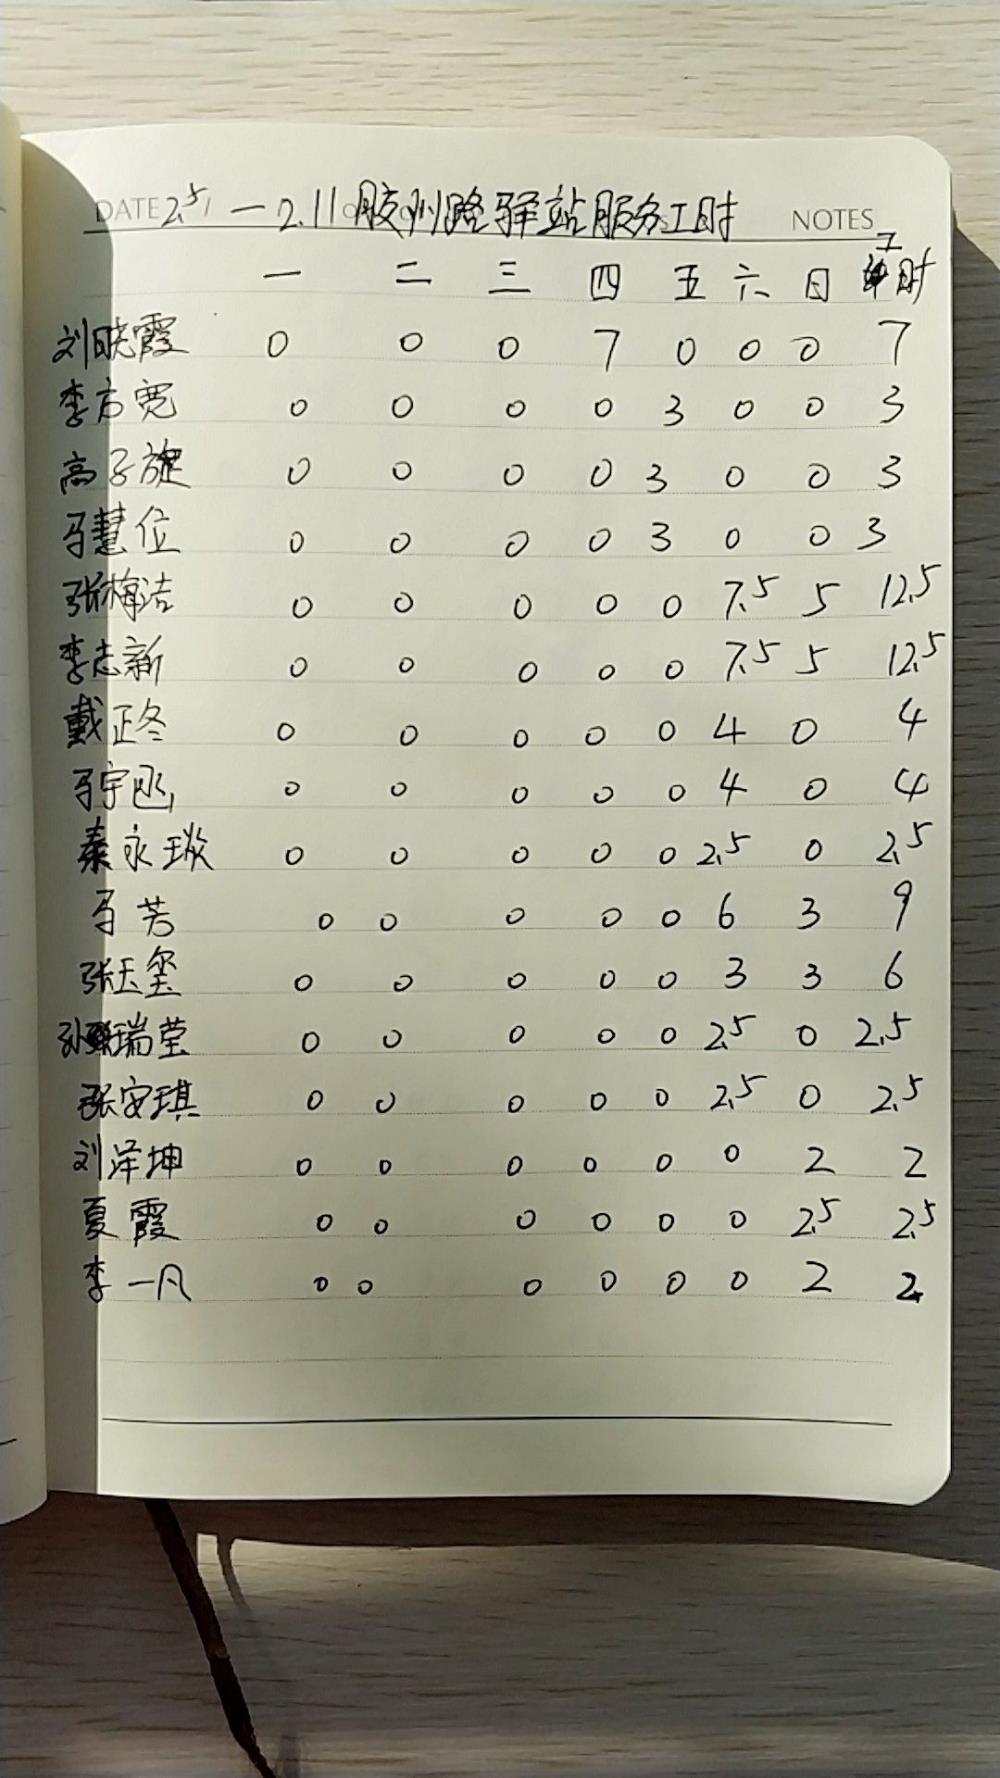 DATE 2.5 — 2.11 胶州路驿站服务工时 NOTES
一 二 三 四 五 六 日 工时
刘晓霞 0 0 0 7 0 0 0 7
李方宽 0 0 0 0 3 0 0 3
高子旋 0 0 0 0 3 0 0 3
马慧位 0 0 0 0 3 0 0 3
张梅洁 0 0 0 0 0 7.5 5 12.5
李志新 0 0 0 0 0 7.5 5 12.5
戴正冬 0 0 0 0 0 4 0 4
马宇 0 0 0 0 0 4 0 4
秦永琰 0 0 0 0 0 2.5 0 2.5
马芳 0 0 0 0 0 6 3 9
张玉玺 0 0 0 0 0 3 3 6
孙瑞莹 0 0 0 0 0 2.5 0 2.5
张安琪 0 0 0 0 0 2.5 0 2.5
刘泽坤 0 0 0 0 0 0 2 2
夏霞 0 0 0 0 0 0 2.5 2.5
李一凡 0 0 0 0 0 0 2 2